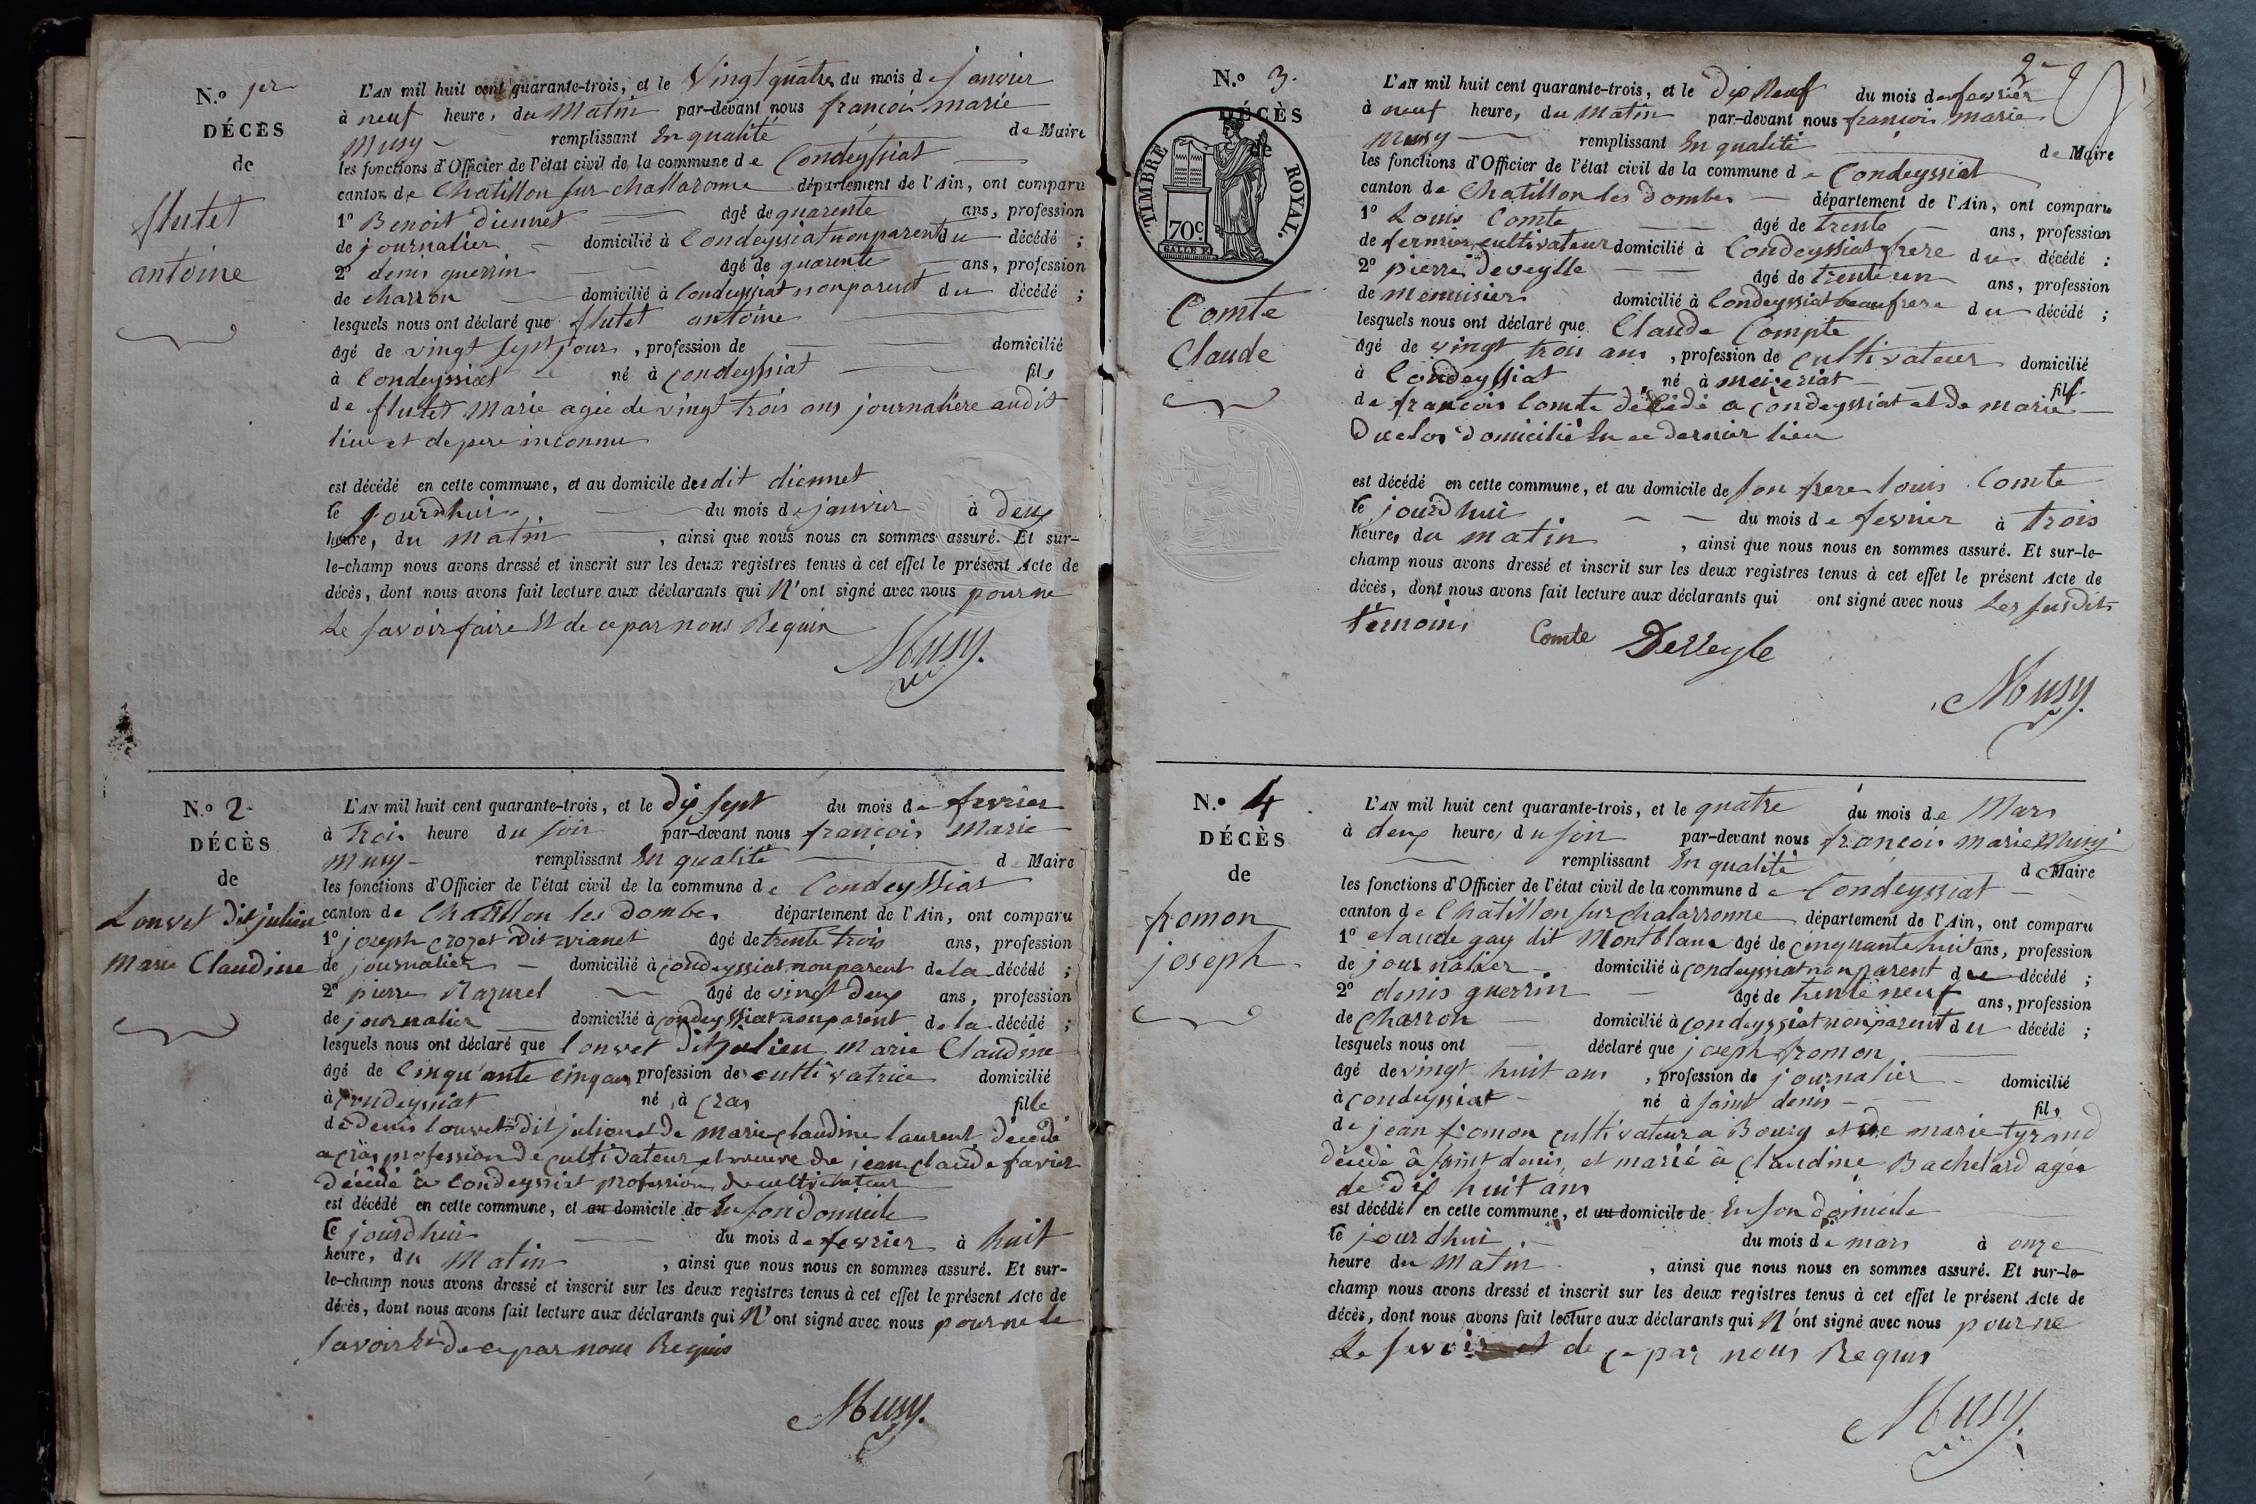 N.º 1er
DÉCÈS
de
flutet
antoine
L'AN mil huit cent quarante-trois, et le vingt quatre du mois de janvier
à neuf heure, du Matin par-devant nous françois marie
Musy remplissant En qualité de Maire
les fonctions d'Officier de l'état civil de la commune de Condeyssiat
canton de Chatillon sur challaronne département de l'Ain, ont comparu
1º Benoit Diennet âgé de quarente ans, profession
de journalier domicilié à Condeyssiat non parent du décédé ;
2º denis guerrin âgé de quarente ans, profession
de charron domicilié à Condeyssiat non parent du décédé ;
lesquels nous ont déclaré que flutet antoine
âgé de vingt sept jours, profession de domicilié
à Condeyssiat né à Condeyssiat fils
de flutet Marie agée de vingt trois ans journalière audit
lieu et de pere inconnu
est décédé en cette commune, et au domicile dudit diennet
le jourdhui du mois de janvier à deux
heure, du matin, ainsi que nous nous en sommes assuré. Et sur-
le-champ nous avons dressé et inscrit sur les deux registres tenus à cet effet le présent Acte de
décès, dont nous avons fait lecture aux déclarants qui N'ont signé avec nous pour ne
Le savoir faire Et de ce par nous Requis
Musy.
N.º 2.
DÉCÈS
de
Louvet dit julien
Marie Claudine
L'AN mil huit cent quarante-trois, et le dix sept du mois de fevrier
à Trois heure du soir par-devant nous françois Marie
Musy remplissant En qualité d Maire
les fonctions d'Officier de l'état civil de la commune de Condeyssiat
canton de Chatillon les dombes département de l'Ain, ont comparu
1º joseph crozet dit vianet âgé de trente trois ans, profession
de journalier domicilié à condeyssiat non parent de la décédé ;
2º pierre Mazurel âgé de vingt deux ans, profession
de journalier domicilié à condeyssiat non parent de la décédé ;
lesquels nous ont déclaré que louvet dit julien Marie Claudine
âgé de Cinquante cinq ans profession de cultivatrice domicilié
à Condeyssiat né à cras fille
de Denis louvet dit julien et de Marie claudine laurent décédé
a cras profession de cultivateur et veuve de jean claude favier
décédé à Condeyssiat profession de cultivateur
est décédé en cette commune, et au domicile de En son domicile
le jourdhui du mois de fevrier à huit
heure, du Matin, ainsi que nous nous en sommes assuré. Et sur-
le-champ nous avons dressé et inscrit sur les deux registres tenus à cet effet le présent Acte de
décès, dont nous avons fait lecture aux déclarants qui N'ont signé avec nous pour ne le
savoir Et de ce par nous Requis
Musy.
2
N.º 3.
DÉCÈS
de
TIMBRE ROYAL.
70c
Comte
Claude
L'AN mil huit cent quarante-trois, et le dix Neuf du mois de fevrier
à neuf heure, du Matin par-devant nous françois marie
Musy remplissant En qualité de Maire
les fonctions d'Officier de l'état civil de la commune de Condeyssiat
canton de Chatillon les dombes département de l'Ain, ont comparu
1º Louis Comte âgé de trente ans, profession
de fermier cultivateur domicilié à Condeyssiat frere du décédé ;
2º pierre deveylle âgé de trente un ans, profession
de menuisier domicilié à Condeyssiat beaufrere du décédé ;
lesquels nous ont déclaré que Claude Compte
âgé de vingt trois ans, profession de cultivateur domicilié
à Condeyssiat né à meizeriat fils
de françois Comte décédé a Condeyssiat et de marie
Duclos domicilié En ce dernier lieu
est décédé en cette commune, et au domicile de son frere louis Comte
le jourdhui du mois de fevrier à trois
heure, du matin, ainsi que nous nous en sommes assuré. Et sur-le-
champ nous avons dressé et inscrit sur les deux registres tenus à cet effet le présent Acte de
décès, dont nous avons fait lecture aux déclarants qui ont signé avec nous Les susdits
témoins
Comte Deveyle
Musy.
N.º 4
DÉCÈS
de
fromon
joseph
L'AN mil huit cent quarante-trois, et le quatre du mois de Mars
à deux heure, du soir par-devant nous françois marie Musy
remplissant En qualité de Maire
les fonctions d'Officier de l'état civil de la commune de Condeyssiat
canton de Chatillon sur chalarronne département de l'Ain, ont comparu
1º claude gay dit Montblanc âgé de cinquante huit ans, profession
de journalier domicilié à condeyssiat non parent du décédé ;
2º denis guerrin âgé de trente neuf ans, profession
de Charron domicilié à condeyssiat non parent du décédé ;
lesquels nous ont déclaré que joseph fromon
âgé de vingt huit ans, profession de journalier domicilié
à condeyssiat né à saint denis fils
de jean fromon cultivateur a Bourg et de marie tyrand
décédé à saint denis, et marié à claudine Bachelard agée
de dix huit ans
est décédé en cette commune, et au domicile de En son domicile
le jourdhui du mois de mars à onze
heure du Matin, ainsi que nous nous en sommes assuré. Et sur-le-
champ nous avons dressé et inscrit sur les deux registres tenus à cet effet le présent Acte de
décès, dont nous avons fait lecture aux déclarants qui N'ont signé avec nous pour ne
Le savoir et de ce par nous Requis
Musy.